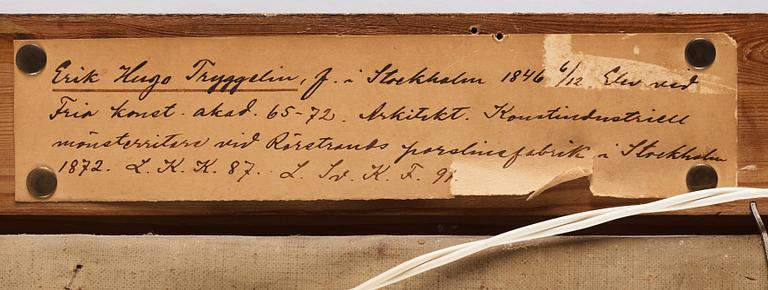 Erik Hugo Tryggelin, f. i Stockholm 1846 6/12 Elev ved
Fria konst. akad. 65-72. Arkitekt. Konstindustriell
mönsterritare vid Rörstrands porslinsfabrik i Stockholm
1872. L. K. K. 87. L. Sv. K. F. 91.